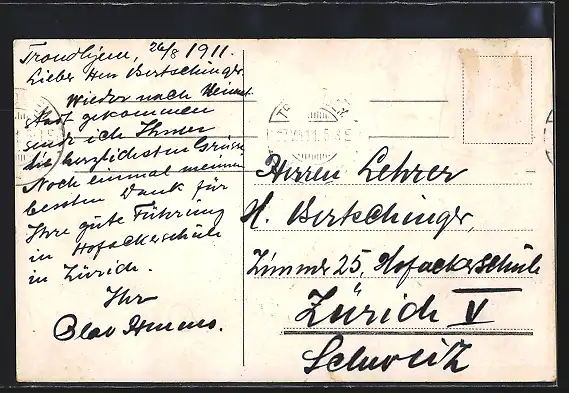 Trondhjem, 26/8 1911.
Lieber Herr Bertschinger.
Wieder nach Heimat
Stadt gekommen
sende ich Ihnen
die herzlichsten Grüsse
Noch einmal meinen
besten Dank für
Ihre gute Führung
in Hofackerschule
in Zürich.
Ihr
Olav
Herren Lehrer
H. Bertschinger,
Zimmer 25, Hofackerschule
Zürich V
Schweiz